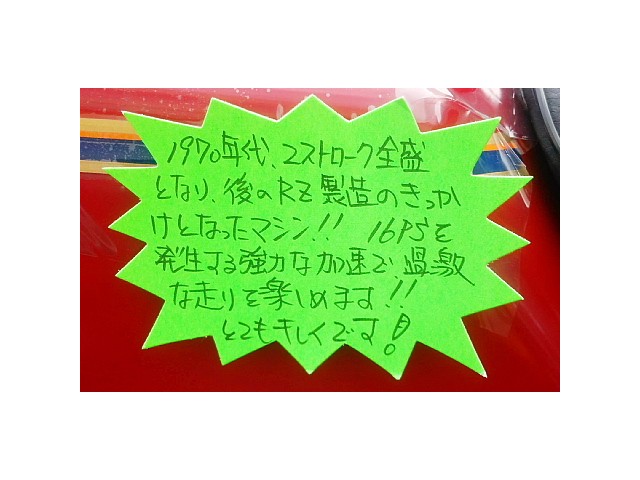 1970年代、2ストローク全盛
となり、後のRZ製造のきっか
けとなったマシン!! 16PSを
発生する強力な加速で、過激
な走りを楽しめます!!
とてもキレイです!